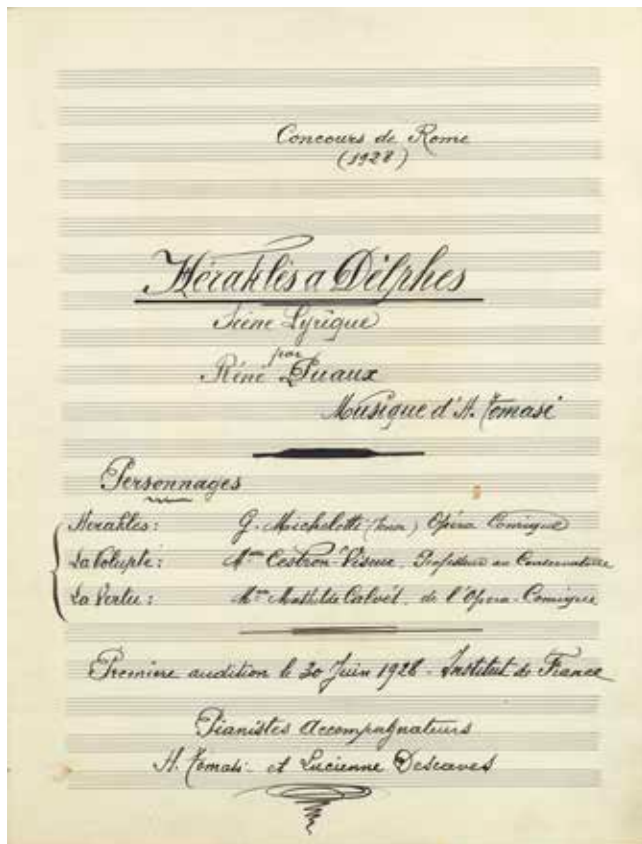 Concours de Rome
(1928)
Héraklès a Délphes
Scène Lyrique
par
Réné Puaux
Musique d'H. Tomasi
Personnages
Herakles : G. Michelotti (Tenor) Opéra Comique
La Volupté : Mme Cestron-Viseur, Professeur au Conservatoire
La Vertu : Mme Mathilde Calvet, de l'Opera-Comique
Première audition le 30 Juin 1928 - Institut de France
Pianistes Accompagnateurs
H. Tomasi - et Lucienne Descaves